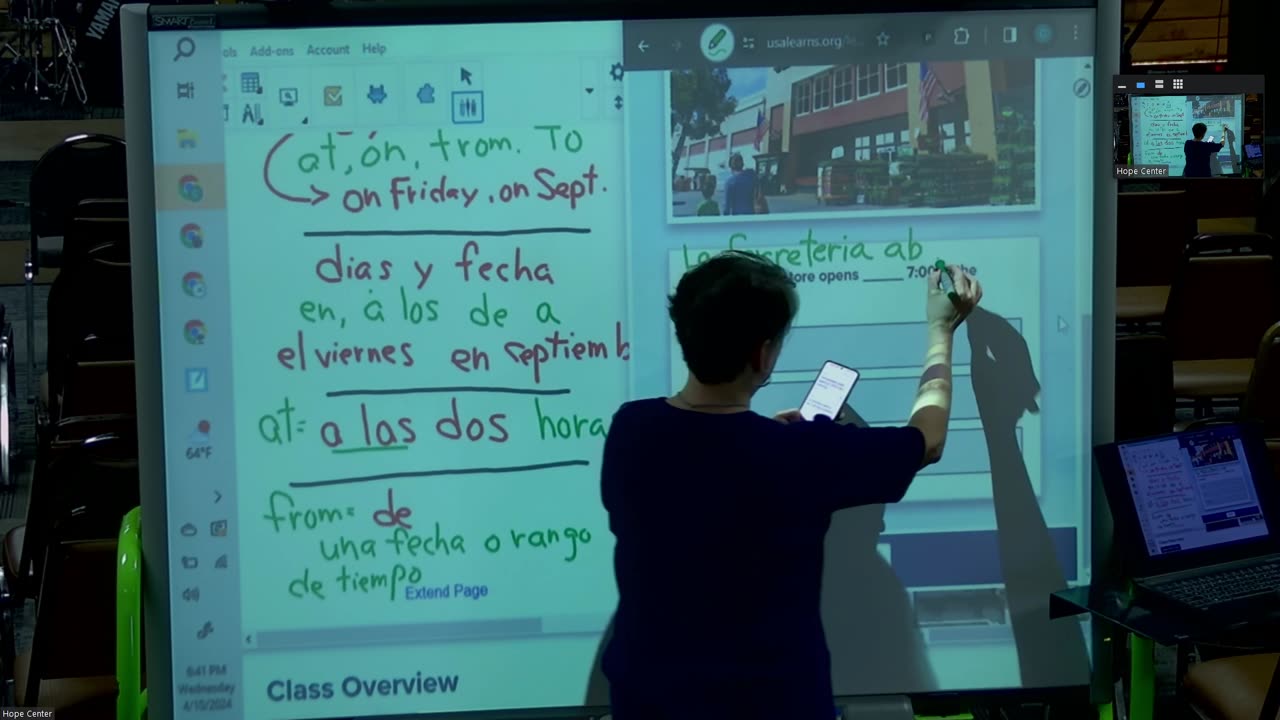 YAMAHA
SMART Board
ols Add-ons Account Help
usalearns.org/le
at, on, from. TO
on Friday, on Sept.
dias y fecha
en, a los de a
el viernes en septiemb
at= a las dos hora
from= de
una fecha o rango
de tiempo
Extend Page
Class Overview
La ferreteria ab
tore opens _____ 7:00
64°F
6:41 PM
Wednesday
4/10/2024
Hope Center
Hope Center